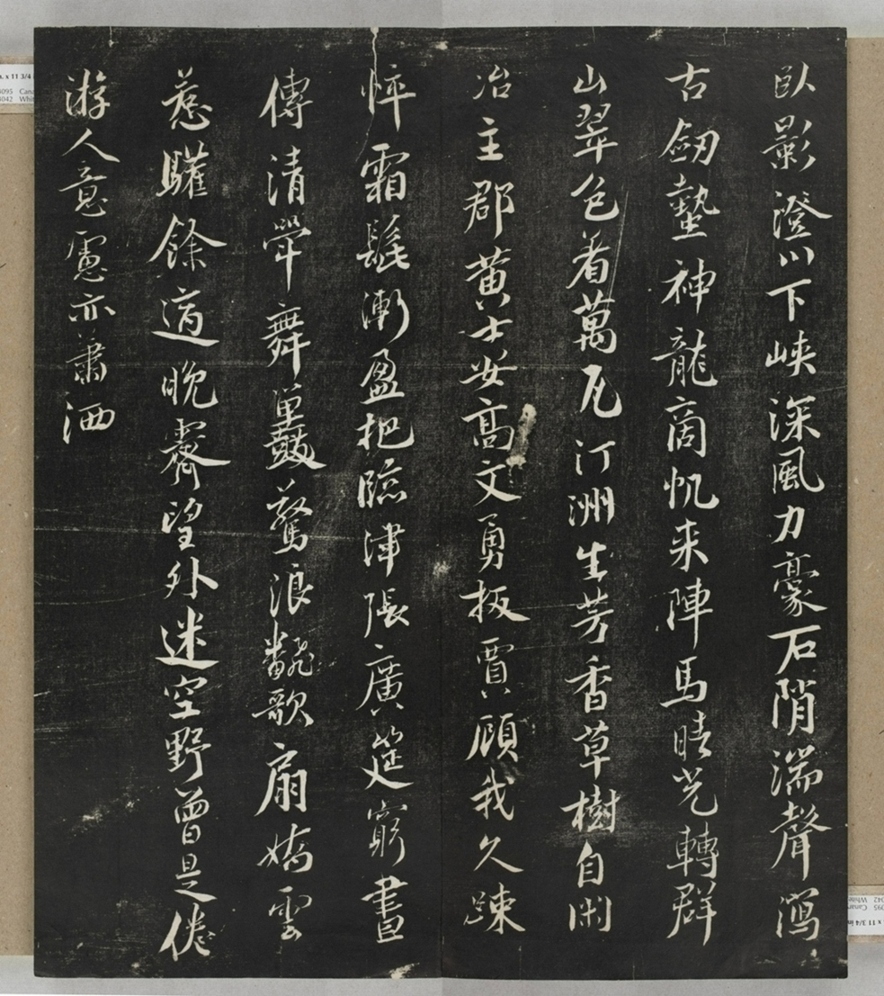 臥影澄川下峽深風力豪石隋湍聲瀉
古劒蟄神龍商帆来陣馬晴光轉群
山翠色着萬瓦汀洲生芳香草樹自閑
冶主郡黄士安高文勇扳賈顧我久踈
悴霜髭漸盈把臨津張廣筵窮晝
傳清斚舞鼉鼓驚浪翻歌扇嬌雲
惹驩餘適晚霽望外迷空野曽是倦
游人意慮亦蕭洒